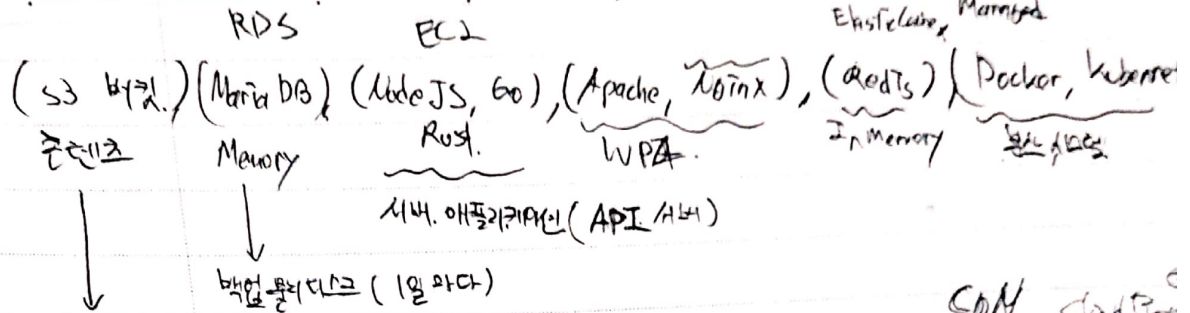 RDS EC2 Managed
(S3 버킷.) (Maria DB), (Node JS, Go), (Apache, Nginx), (Redis), (Docker, Kubernet
콘텐츠 Memory Rust. In Memory 분산 시스템
서버. 애플리케이션 (API. 서버)
백업 물리디스크 (1일 마다)
CDN